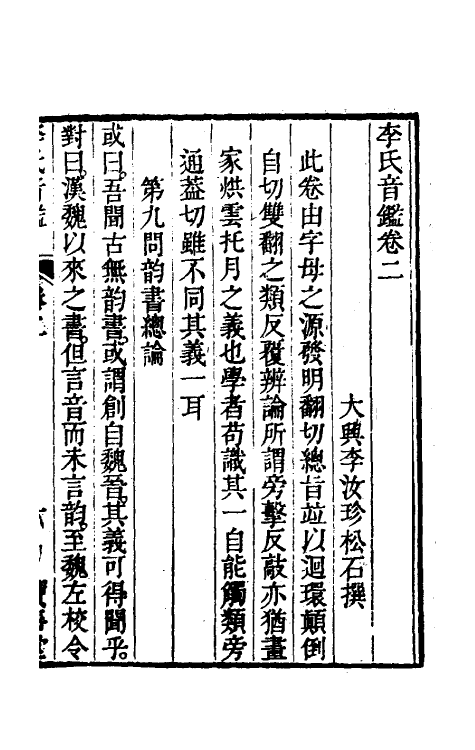 李氏音鑑卷二
大興李汝珍松石撰
此卷由字母之源發明翻切總旨並以迴環顛倒
自切雙翻之類反覆辨論所謂旁擊反敲亦猶畫
家烘雲托月之義也學者苟識其一自能觸類旁
通葢切雖不同其義一耳
第九問韵書總論
或曰。吾聞古無韵書。或謂創自魏晉。其義可得聞乎。
對曰。漢魏以來之書。但言音而未言韵。至魏左校令
李氏音鑑